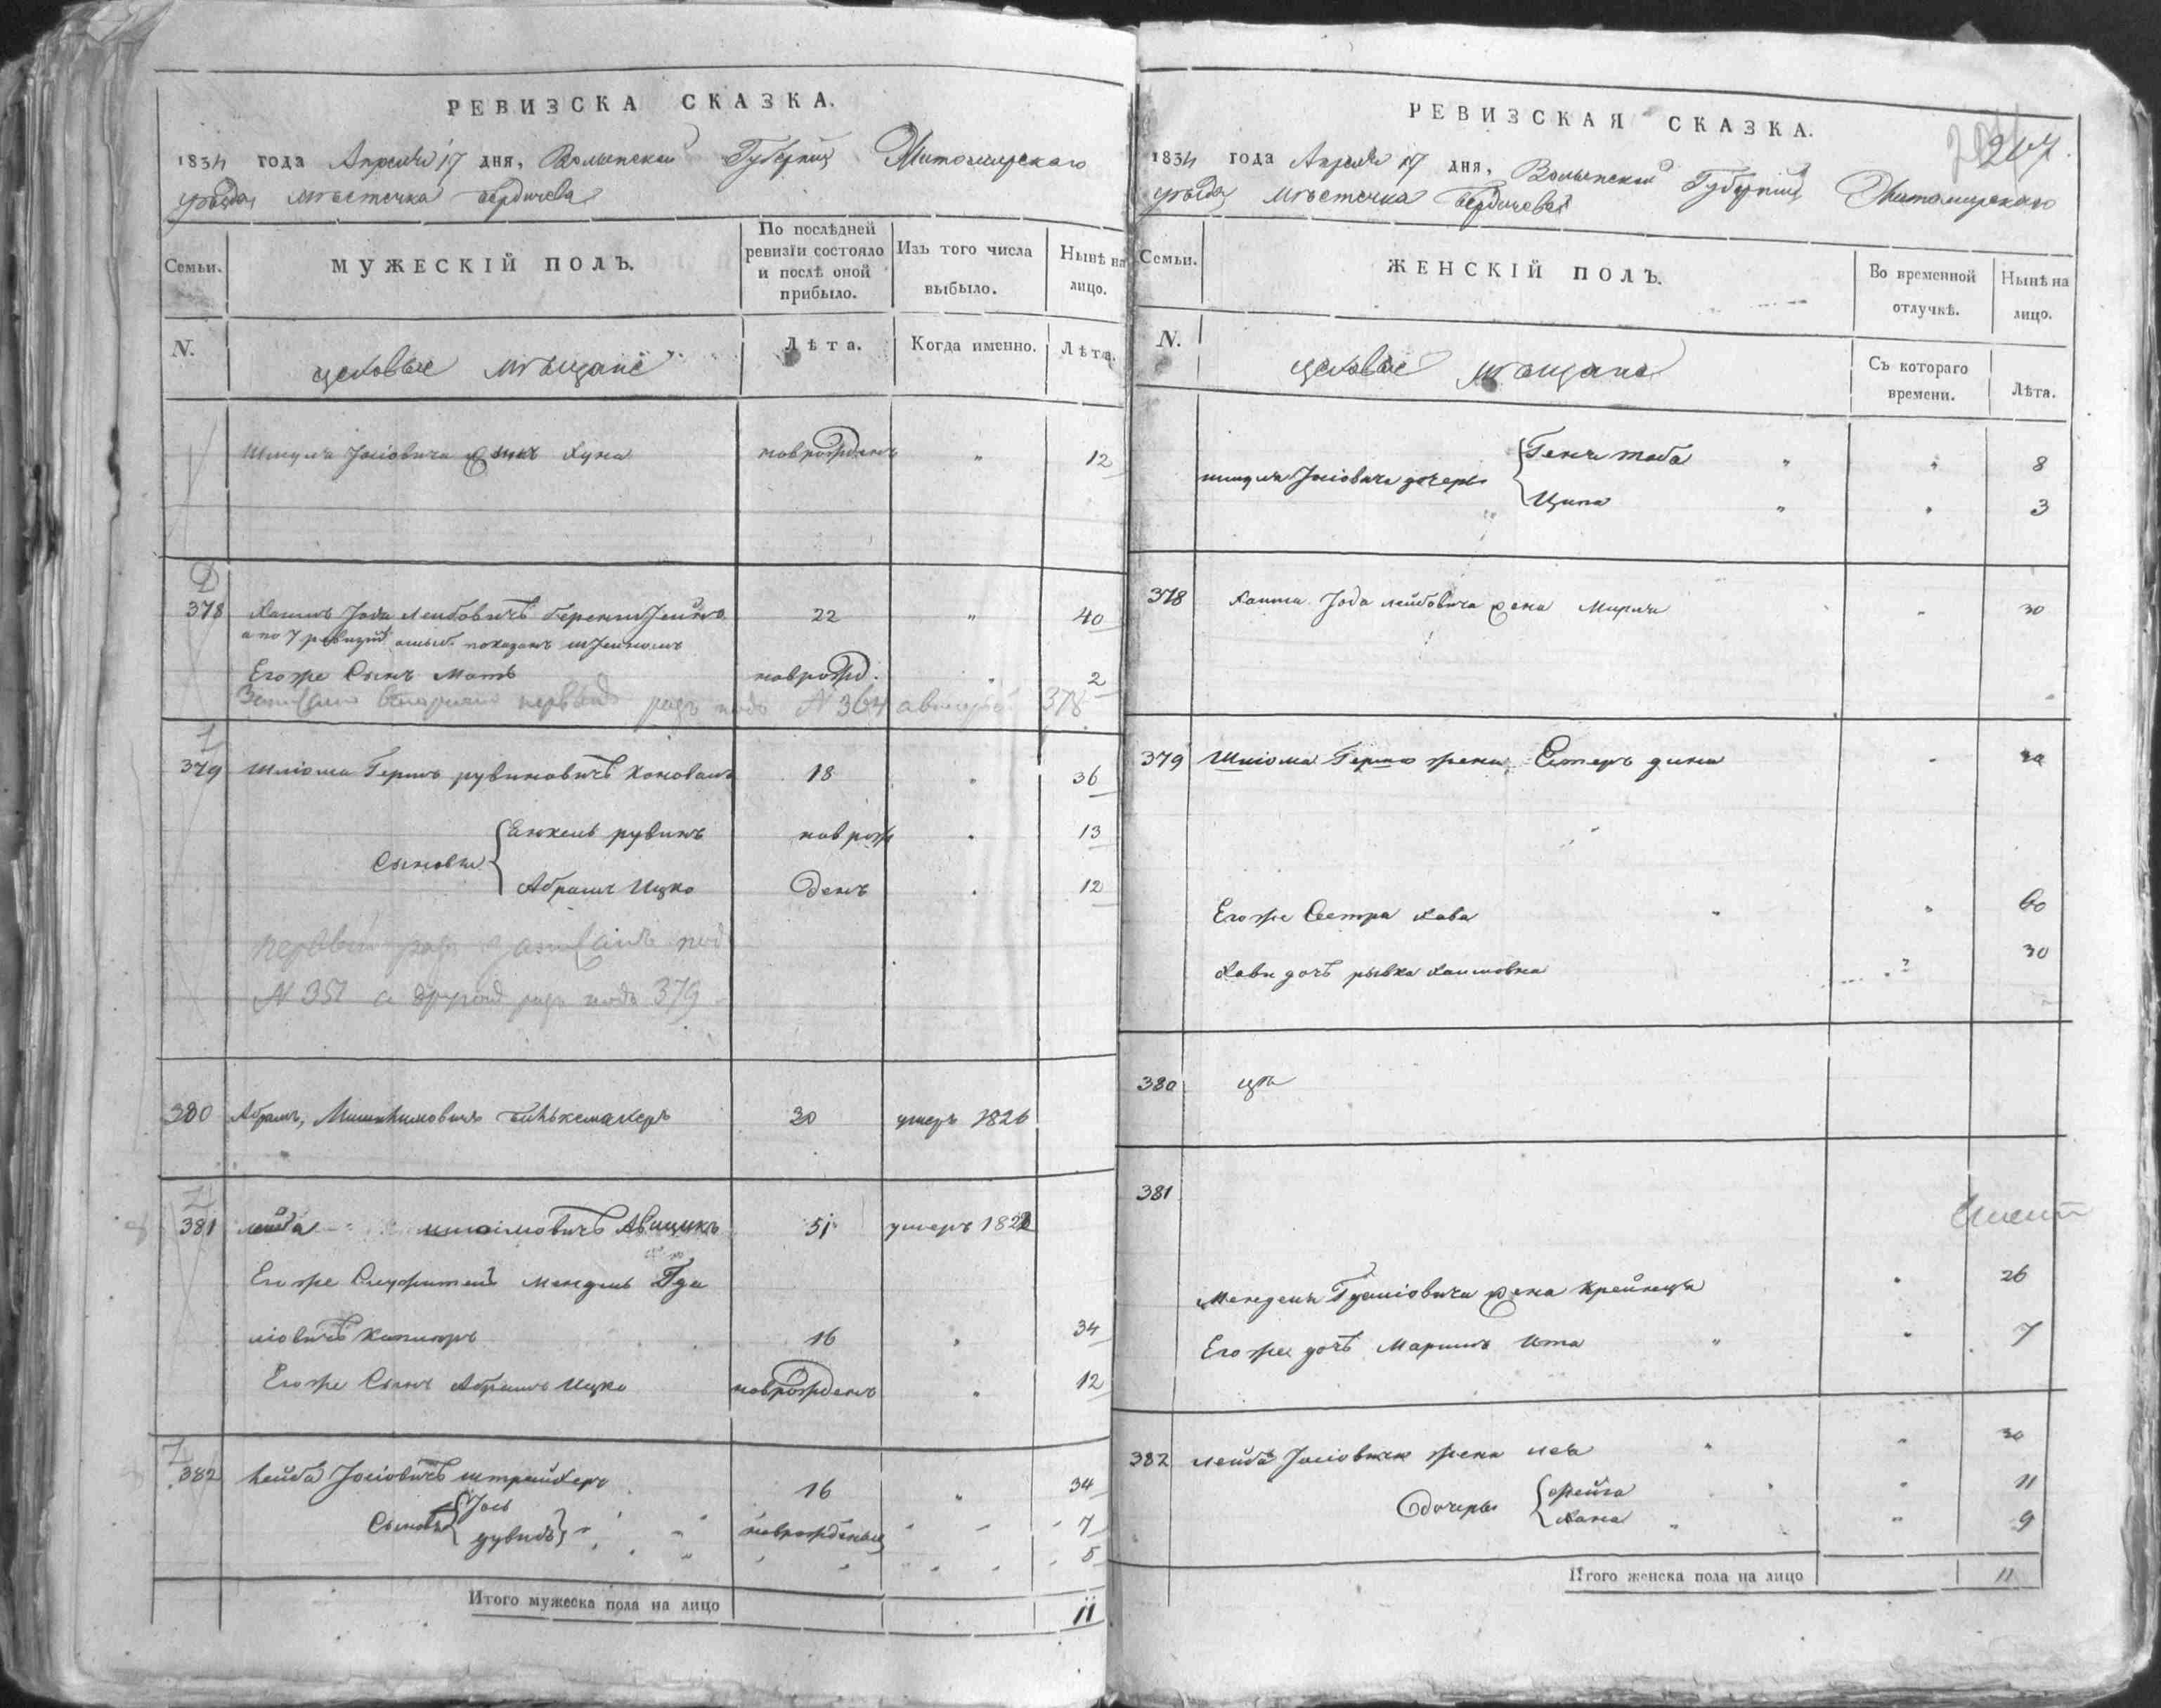 РЕВИЗСКА СКАЗКА.
1834 года Апреля 17 дня, Волынской Губернии Житомирскаго
уѣзда мѣстечка Бердичева
Семьи.
МУЖЕСКІЙ ПОЛЪ.
По послѣдней ревизіи состояло и послѣ оной прибыло.
Изъ того числа выбыло.
Нынѣ на лицо.
N.
цеховые мѣщане
Лѣта.
Когда именно.
Лѣта.
Шмуля Јосіовича сынъ Хуна новорожденъ " 12
378 Хаимъ Јода Лейбовичъ 22 " 40
а по 7 ревизіи показанъ
Егоже Сынъ Мотъ новрожд. " 2
первый разъ подъ N 364 378
379 Шліома Гершъ рувиновичъ Коновалъ 18 " 36
Сыновья { Енкель рувинъ новрож " 13
Абрамъ Ицко денъ " 12
первый разъ записанъ под
N 351 а другой разъ подъ 379
380 Абрамъ, 30 умеръ 1826
381 лейба 51 умеръ 1822
Егоже Мендель Гда
ліовичъ 16 " 34
Егоже Сынъ Абрамъ Ицко новрожденъ " 12
382 Лейба Јосіовичъ штрейхеръ 16 " 34
Сыновья { Јось
дувидъ } новрожденые 7
5
Итого мужеска пола на лицо 11
РЕВИЗСКАЯ СКАЗКА.
207.
1834 года Апреля 17 дня, Волынской Губерніи Житомирскаго
уѣзда мѣстечка Бердичева
Семьи.
ЖЕНСКІЙ ПОЛЪ.
Во временной отлучкѣ.
Нынѣ на лицо.
N.
цеховые мѣщане
Съ котораго времени.
Лѣта.
шмуля Јосіовича дочеры { Геня тоба " " 8
Ципа " " 3
378 Хаима Јода лейбовича жена Мирля " 30
379 Шліома Гершко жена Естеръ дина "
Егоже Сестра Хава " " 60
Хавы дочь рывка Хаимовна " 30
380
381
Менделя жена Крейнця " 26
Егоже дочь Маримъ Ита " " 7
382 Лейба Јосіовича жена леа " " 30
дочеры { фейга " " 11
Хана " " 9
Итого женска пола на лицо 11